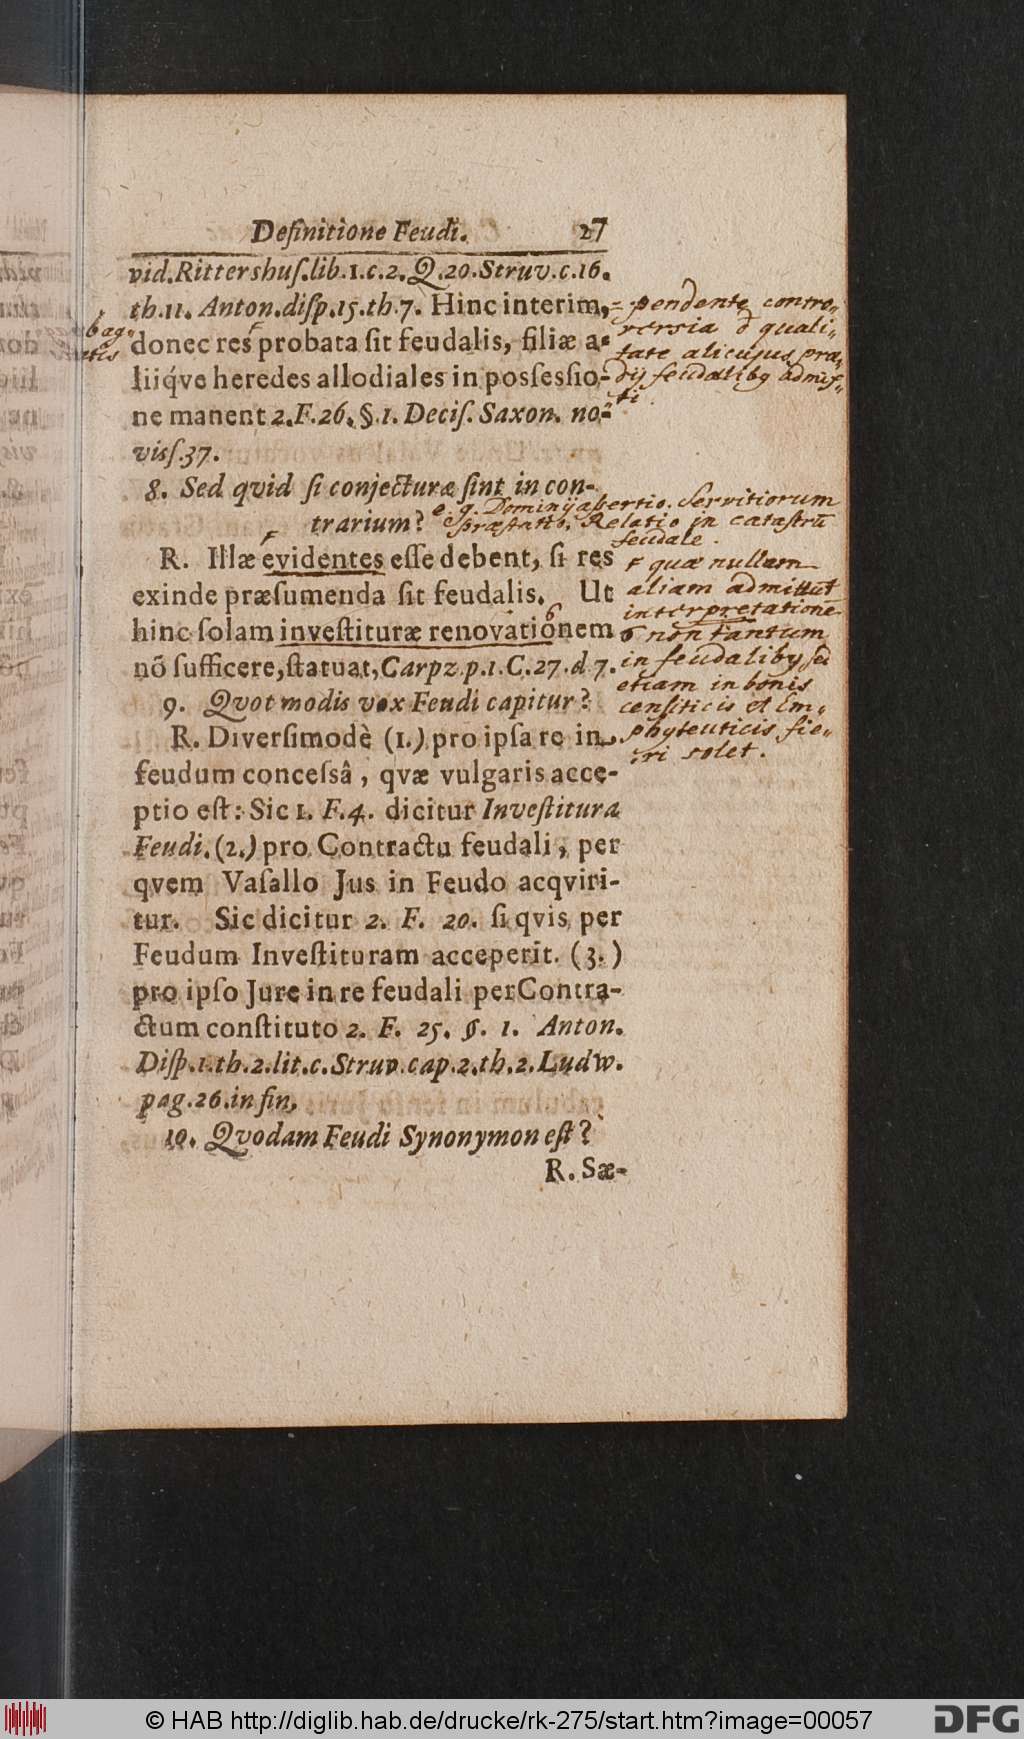 Definitione Feudi. 27
vid. Rittershuſ. lib. 1. c. 2. Q. 20. Struv. c. 16.
th. 11. Anton. diſp. 15. th. 7. Hinc interim,
donec res probata ſit feudalis, filiæ a-
liiq́ve heredes allodiales in posſesſio-
ne manent 2. F. 26. §. 1. Deciſ. Saxon. no-
visſ. 37.
pendente contro-
versia d quali-
tate alicujus præ-
dij feudalibq admis-
ti
8. Sed qvid ſi conjecturæ ſint in con-
trarium?
e. g. Dominij assertio. Servitiorum
præstatio. Relatio in catastrū
feudale.
R. Illæ evidentes eſſe debent, ſi res
exinde præſumenda ſit feudalis. Ut
hinc ſolam inveſtituræ renovationem
nō ſufficere, ſtatuat, Carpz. p. 1. C. 27. d 7.
F quæ nullam
aliam admittūt
interpretatione
6 non tantum
in feudalibq sed
etiam in bonis
censiticis et Em-
phyteuticis fie-
ri solet.
9. Qvot modis vox Feudi capitur?
R. Diverſimodè (1.) pro ipſa re in
feudum conceſsâ, qvæ vulgaris acce-
ptio eſt: Sic 1. F. 4. dicitur Inveſtitura
Feudi. (2.) pro Contractu feudali, per
qvem Vaſallo Jus in Feudo acqviri-
tur. Sic dicitur 2. F. 20. ſi qvis per
Feudum Inveſtituram acceperit. (3.)
pro ipſo Jure in re feudali per Contra-
ctum conſtituto 2. F. 25. §. 1. Anton.
Diſp. 1. th. 2. lit. c. Struv. cap. 2. th. 2. Ludw.
pag. 26. in fin.
10. Qvodam Feudi Synonymon eſt?
R. Sæ-
© HAB http://diglib.hab.de/drucke/rk-275/start.htm?image=00057
DFG